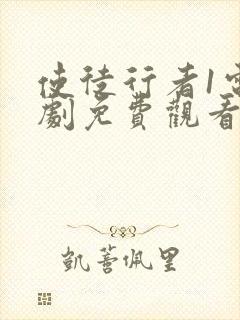 使徒行者1電
劇免費觀看
凱薈佩里